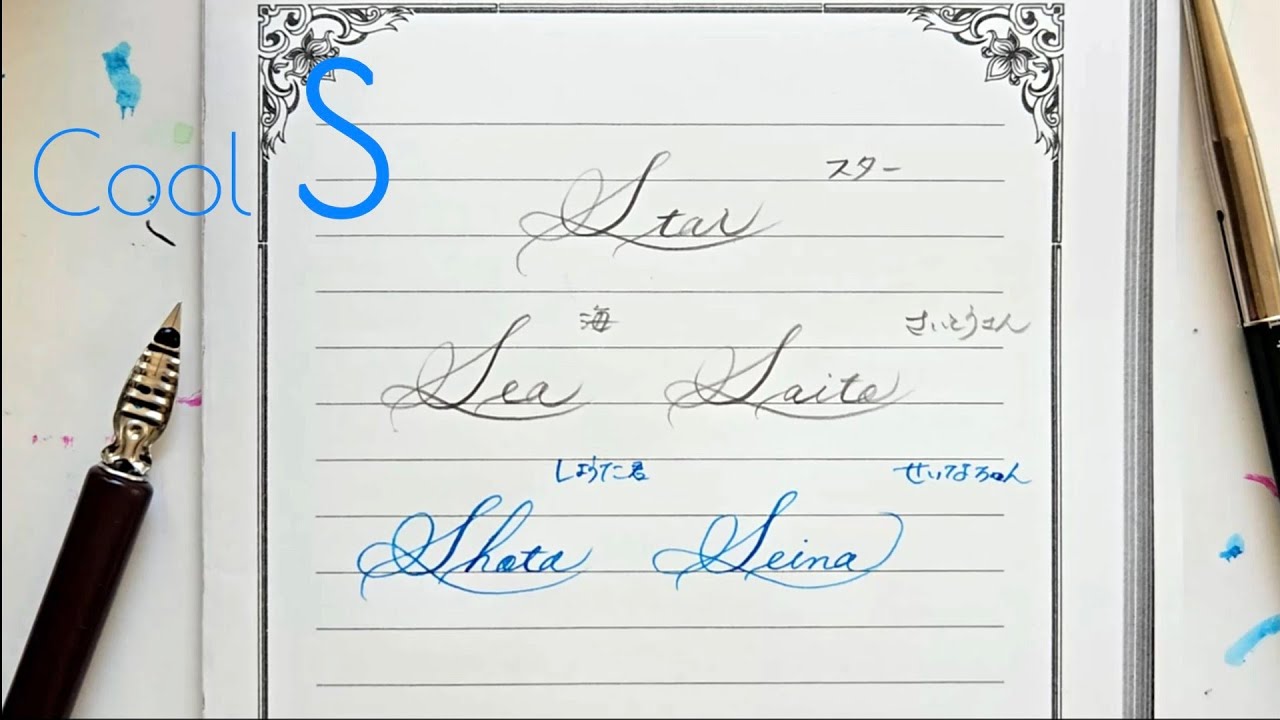 Cool S
Star スター
海 さいとうさん
Sea Saito
しょうた君 せいなちゃん
Shota Seina